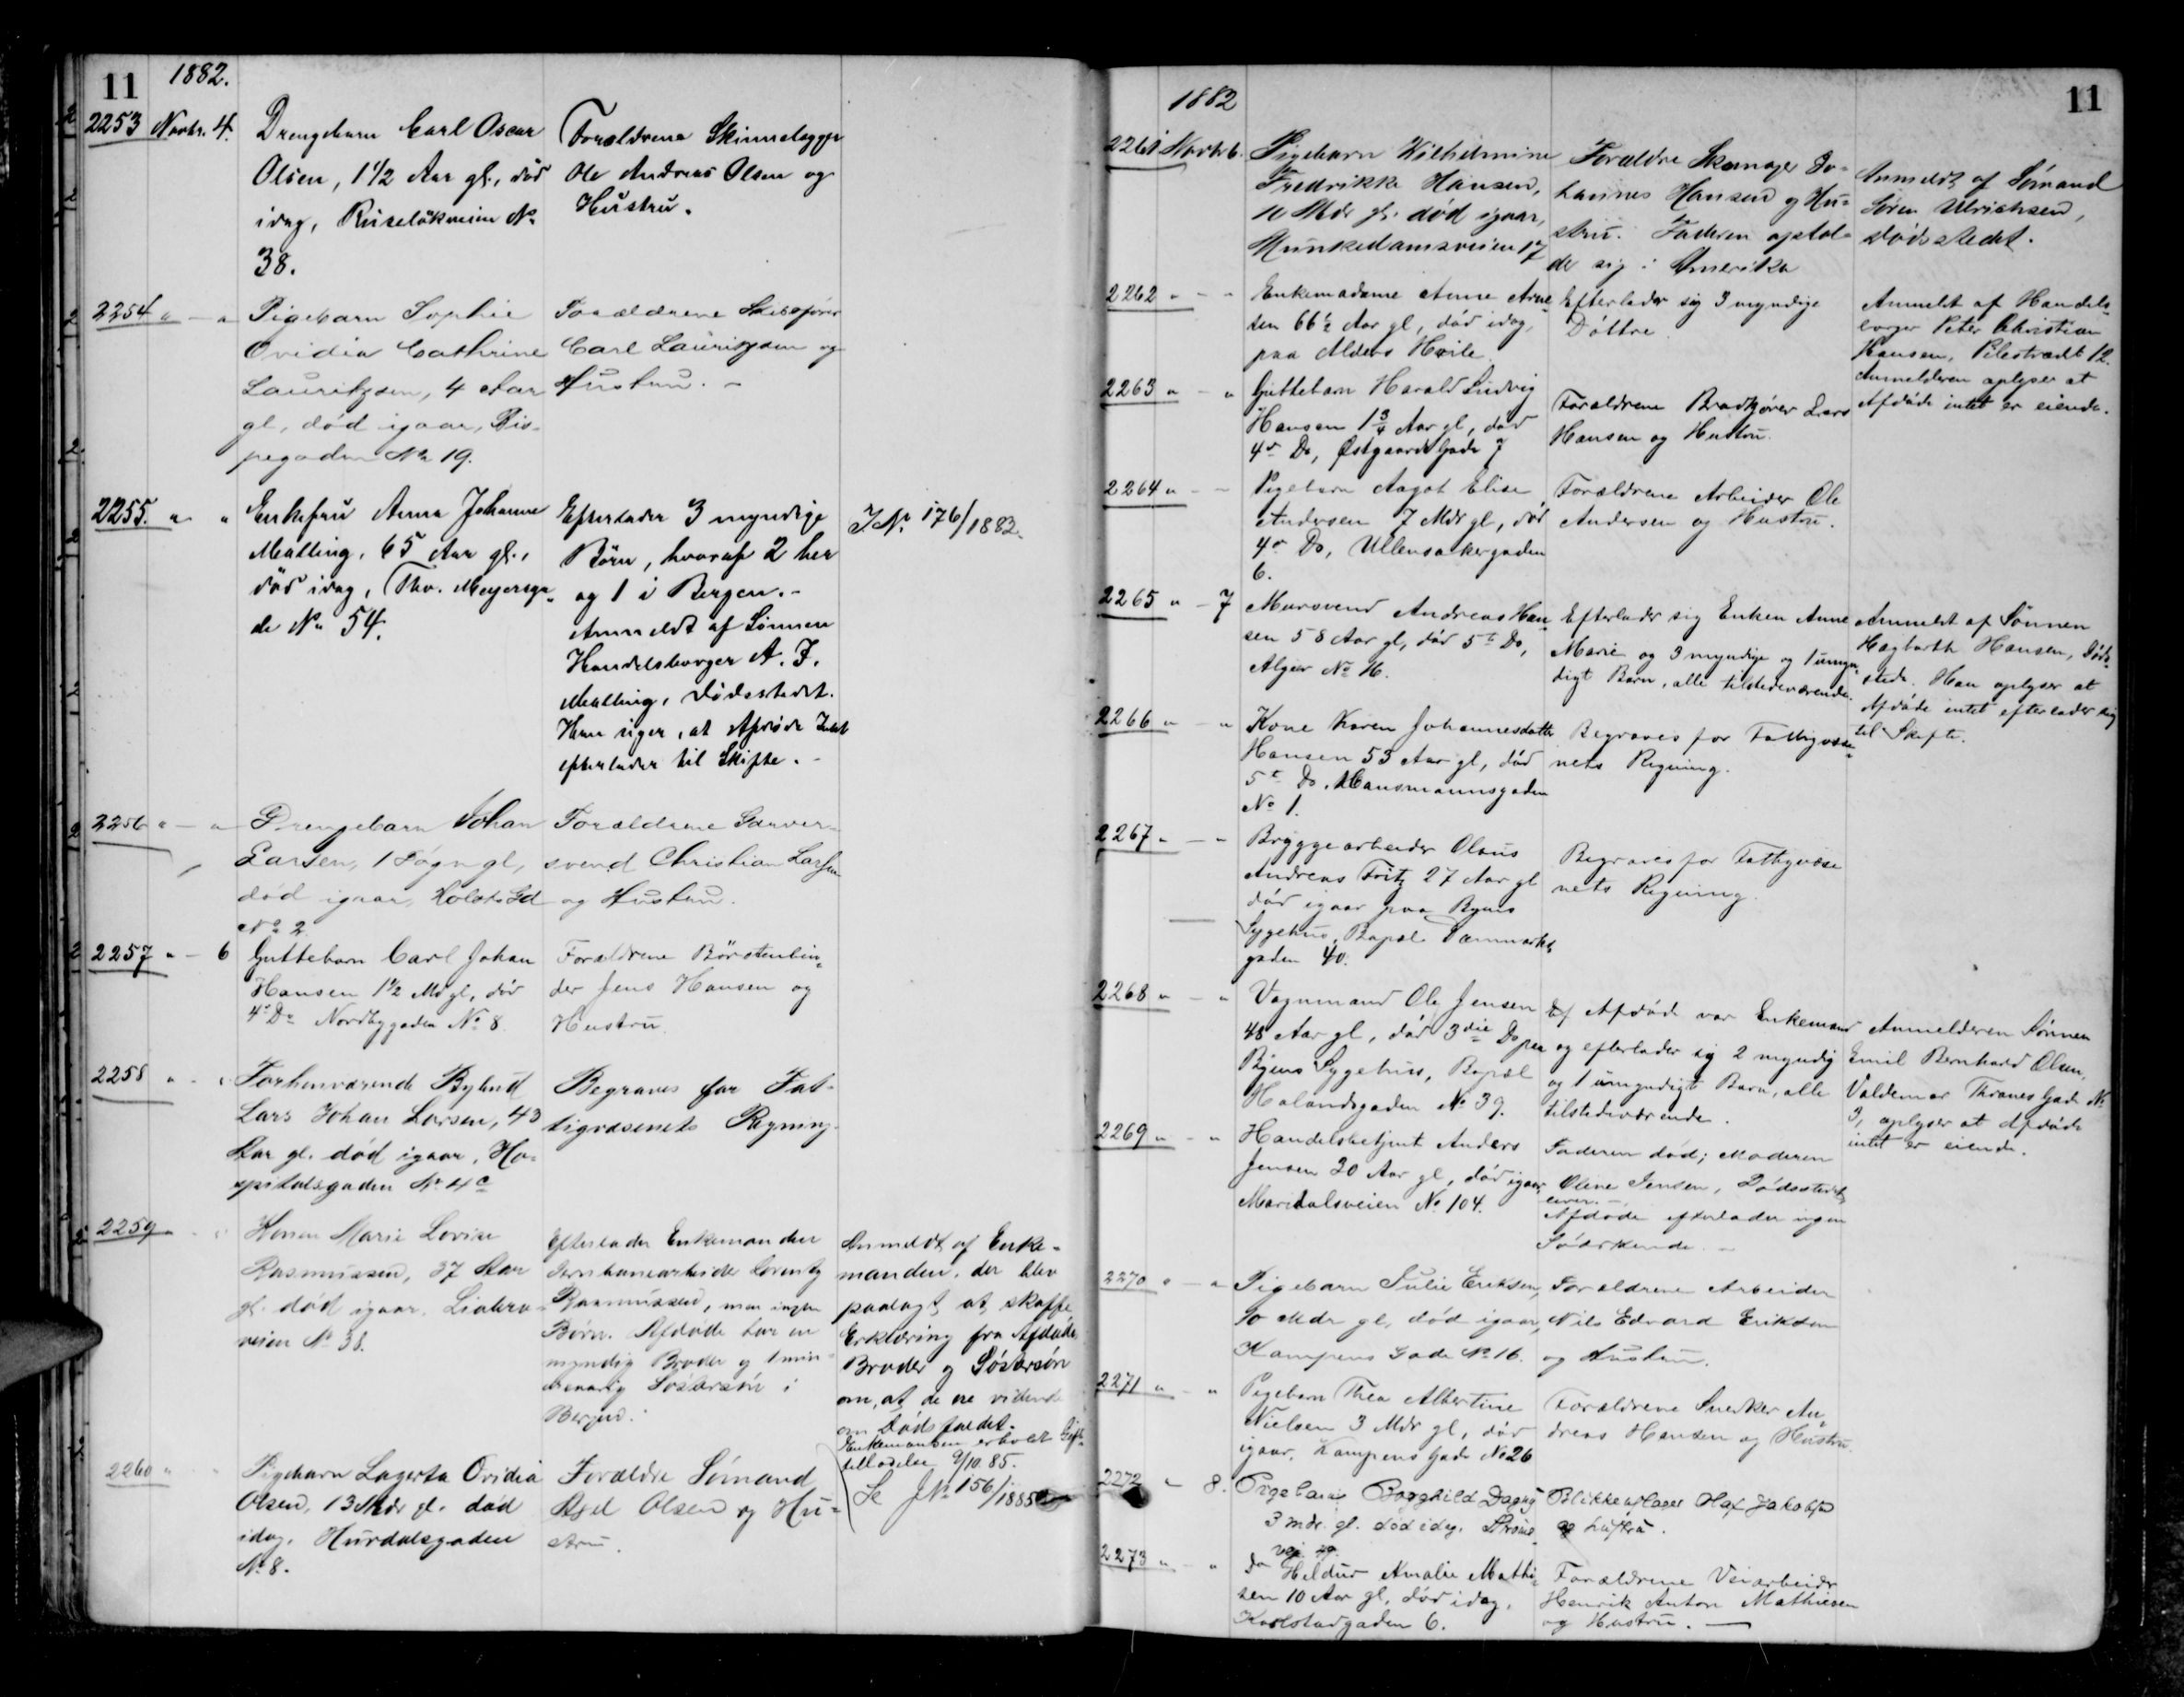 11
1882.
2253 Novbr. 4.
Drengebarn Carl Oscar
Olsen, 1 1/2 Aar gl., död
idag, Ruselökveien No
38.
Forældrene
Ole Andreas Olsen og
Hustru.
2254 " — "
Pigebarn Sophie
Ovidia Cathrine
Lauritzsen, 4 Aar
gl, död igaar, Bis-
pegaden No 19.
Forældrene Skibsfører
Carl Lauritzsen og
Hustru. –
2255. " "
Enkefru Anna Johanne
Malling, 65 Aar gl.,
död idag, Thv. Meyersga-
de No 54.
Efterlader 3 myndige
Börn, hvoraf 2 her
og 1 i Bergen. –
Anmeldt af Sönnen
Handelsborger A. F.
Malling, Dödsstedet.
Han siger, at Afdöde Intet
efterlader til Skifte. –
J No 176/1882.
2256 " — "
Drengebarn Johan
Larsen, 1 Døgn gl,
död igaar, Holsts Gd
No 2.
Forældrene Garver-
svend Christian Larsen
og Hustru.
2257 " — 6
Guttebarn Carl Johan
Hansen 1 1/2 Md gl, död
4de Do Nordbygaden No 8.
Forældrene Börstenbin-
der Jens Hansen og
Hustru.
2258 " "
Forhenværende Bybud
Lars Johan Larsen, 43
Aar gl. död igaar, Ho-
spitalsgaden No 4c
Begraves for Fat-
tigvæsenets Regning.
2259 " "
Konen Marie Lovise
Rasmussen, 37 Aar
gl. död igaar. Liabro-
veien No 38.
Efterlader Enkemanden
Jernbanearbeider Lorentz
Rasmussen, men ingen
Börn. Afdöde har en
myndig Broder og 1 min-
dreaarig Sösterson i
Bergen.
Anmeldt af Enke-
manden, der blev
paalagt at skaffe
Erklæring fra Afdödes
Broder og Söstersön
om, at de ere vidende
om Dödsfaldet.
Enkemanden erholdt Gifte-
tilladelse 9/10 85.
Se J No 156/1885
2260 " "
Pigebarn Lagerta Ovidia
Olsen, 13 Mdr gl. död
idag, Hurdalsgaden
No 8.
Forældre Sömand
Axel Olsen og Hu-
stru.
11
1882
2261 Novbr 6.
Pigebarn Wilhelmine
Fredrikke Hansen,
10 Mdr gl. död igaar,
Munkedamsveien 17
Forældre Skomager Jo-
hannes Hansen og Hu-
stru. Faderen ophol-
der sig i Amerika
Anmeldt af Sömand
Sören Ulrichsen,
Dödsstedet.
2262 " — "
Enkemadame Anne Arne-
sen 66 1/2 Aar gl, död idag,
paa Alders Hvile
Efterlader sig 3 myndige
Döttre.
Anmeldt af Handels-
borger Peter Christian
Hansen, Pilestrædet 12.
Anmelderen oplyser at
Afdöde intet er eiende.
2263 " — "
Guttebarn Harald Ludvig
Hansen 1 3/4 Aar gl, död
4de Do, Østgaards Gade 7
Forældrene Brødkjører Lars
Hansen og Hustru.
2264 " — "
Pigebarn Aagot Elise
Andersen 7 Mdr gl, död
4de Do, Ullensakergaden
6.
Forældrene Arbeider Ole
Andersen og Hustru.
2265 " — 7
Mursvend Andreas Han-
sen 58 Aar gl, död 5te Do,
Algier No 16.
Efterlader sig Enken Anne
Marie og 3 myndige og 1 umyn-
digt Barn, alle tilstedeværende.
Anmeldt af Sönnen
Hagbarth Hansen, Döds-
stedet. Han oplyser at
Afdöde intet efterlader sig
til Skifte.
2266 " — "
Kone Karen Johannesdatter
Hansen 53 Aar gl, död
5te Do. Mansmannsgaden
No 1.
Begraves for Fattigvæse-
nets Regning.
2267 " — "
Bryggearbeider Olaus
Andreas Fritz 27 Aar gl
död igaar paa Byens
Sygehus, Bopæl Danmarks
gaden 40.
Begraves for Fattigvæse
nets Regning.
2268 " — "
Vognmand Ole Jensen
48 Aar gl, död 3die Do paa
Byens Sygehus, Bopæl
Halandsgaden No 39.
Afdöde var Enkemand
og efterlader sig 2 myndig
og 1 umyndigt Barn, alle
tilstedeværende.
Anmelderen Sönnen
Emil Bernhard Olsen,
Valdemar Thranes Gade No
3, oplyser at Afdöde
intet er eiende.
2269 " — "
Handelsbetjent Anders
Jensen 20 Aar gl, död igaar
Maridalsveien No 104.
Faderen död; Moderen
Oline Jensen, Dödsstedet,
lever. –
Afdöde efterlader ingen
Södskende. –
2270 " — "
Pigebarn Julie Eriksen,
10 Mdr gl, död igaar,
Kampens Gade No 16.
Forældrene Arbeider
Nils Edvard Eriksen
og Hustru.
2271 " — "
Pigebarn Thea Albertine
Nielsen 3 Mdr gl, död
igaar, Kampens Gade No 26
Forældrene Snedker An-
dreas Hansen og Hustru.
2272 " — 8.
Pigebarn Borghild Dagny
3 mdr. gl. död idag.
Blikkenslager Jakobsen
og hustru.
2273 " — "
do Heldur Amalie Mathi-
sen 10 Aar gl, död idag,
Karlstadgaden 6.
Forældrene Veiarbeider
Henrik Anton Mathiesen
og Hustru. —